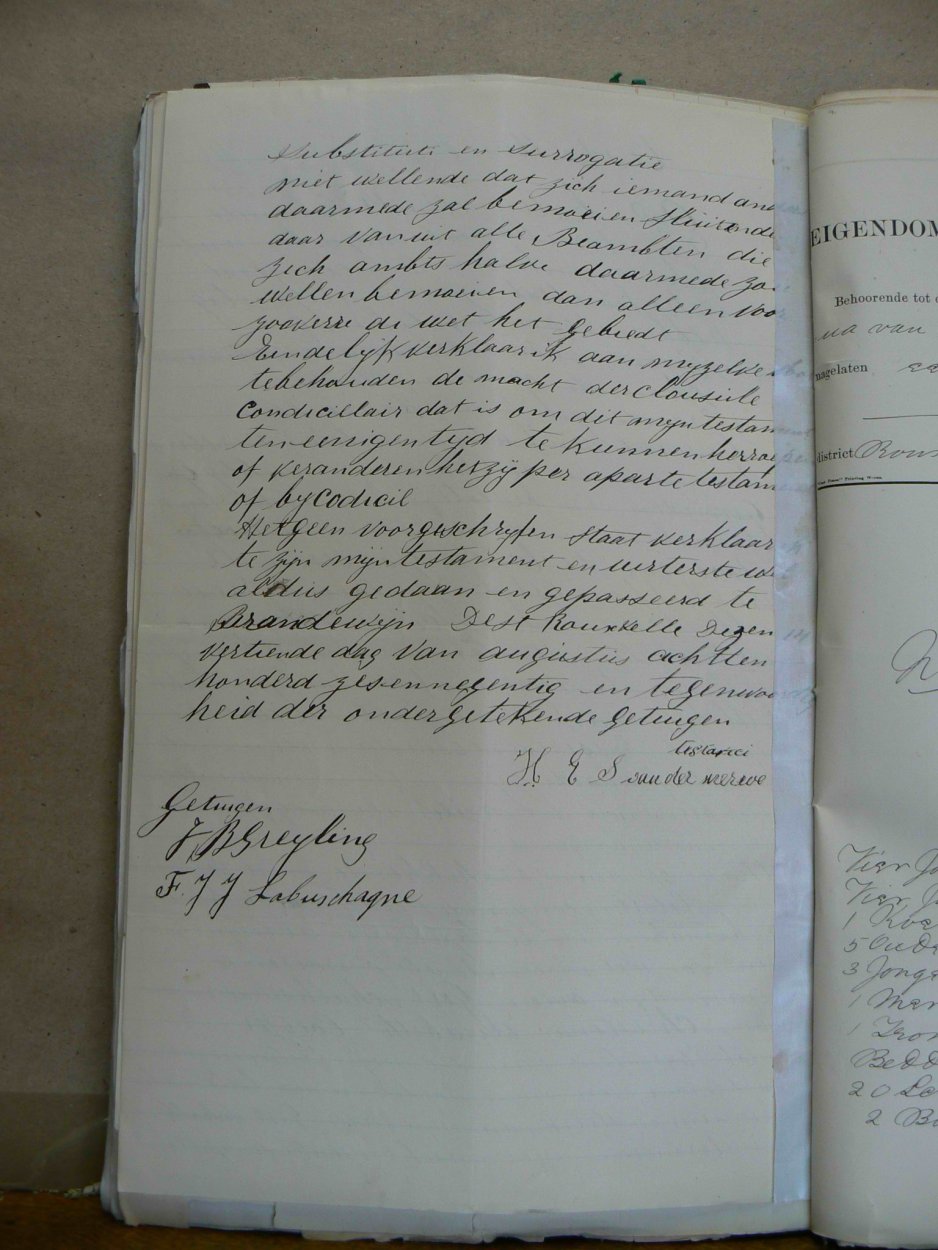 Substituti en Surrogatie
niet wellende dat zich iemand and
daarmede zal bemoeien Sluitende
daar van uit alle Beambten die
zich ambts halve daarmede zou
wellen bemoeien dan alleen voor
zooverre de wet het gebiedt
Eindelijk verklaar ik aan myzelve
tebehouden de macht der Clousule
Condicillair dat is om dit mijn testam
ten eenigen tyd te kunnen herroe
of veranderen hetzij per aparte testam
of by Codicil
Hetgeen voorgeschryfen Staat verklaar
te zijn mijn testament en uiterste w
aldus gedaan en gepasseerd te
Brandewijn Dest Rouxvelle Dezen
veertiende dag van augustus achttien
honderd zesennegentig en tegenwoordig
heid der ondergetekende getuigen
testatrici
H E S van der merwe
Getuigen
J B Greyling
F. J J Labuschagne
EIGENDOM
Behoorende tot
na van
nagelaten
district Roux
Vier Jo
Vier J
1 Koe
5 Oude
3 Jonge
1
1
Bedd
20
2